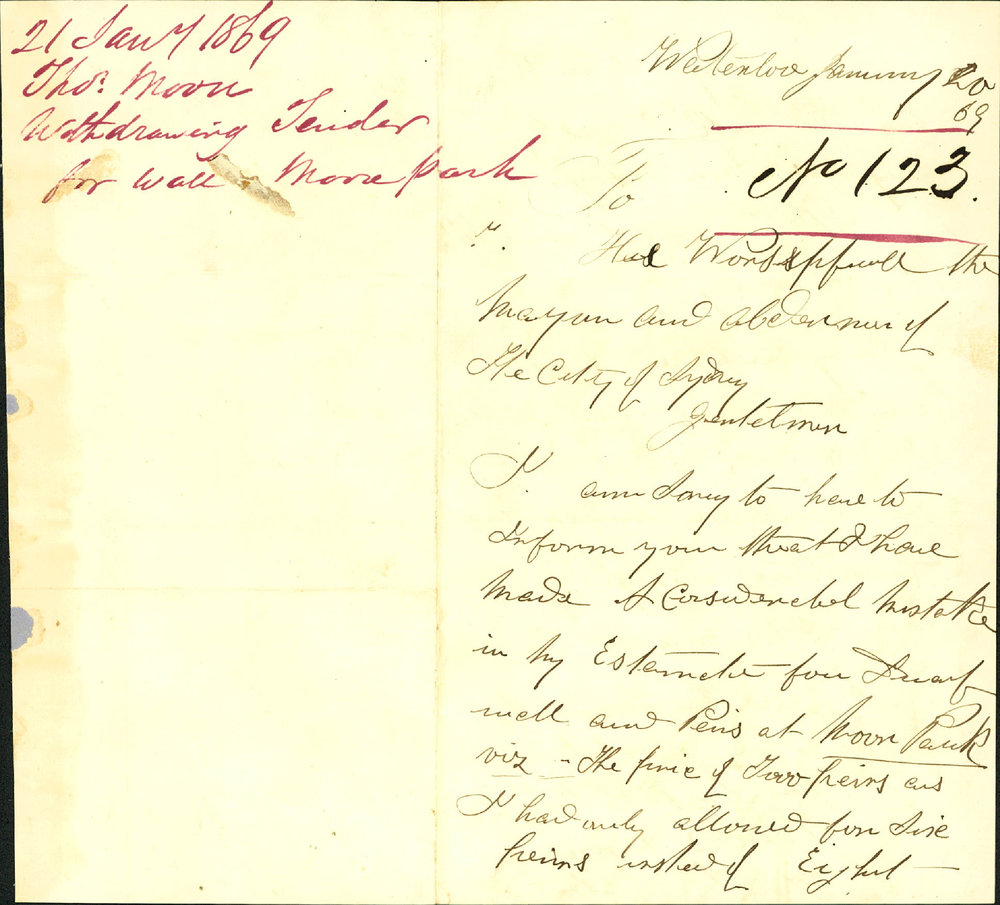 21 Jany 1869
Thos. Moon
Withdrawing Tender
for wall Moore Park
Waterloo January 20
69
No 123.
To
His Worsspfull the
Mayour and alderman of
The City of Sydney
Gentelmen
I. am Sorey to have to
Inform your that I have
Made A Considerebel Mistake
in My Estamete for Dwarf
wall and Peirs at Moor Park
viz - The price of Twoo peirs as
I had only allowed for Sixe
peirs insted of Eight